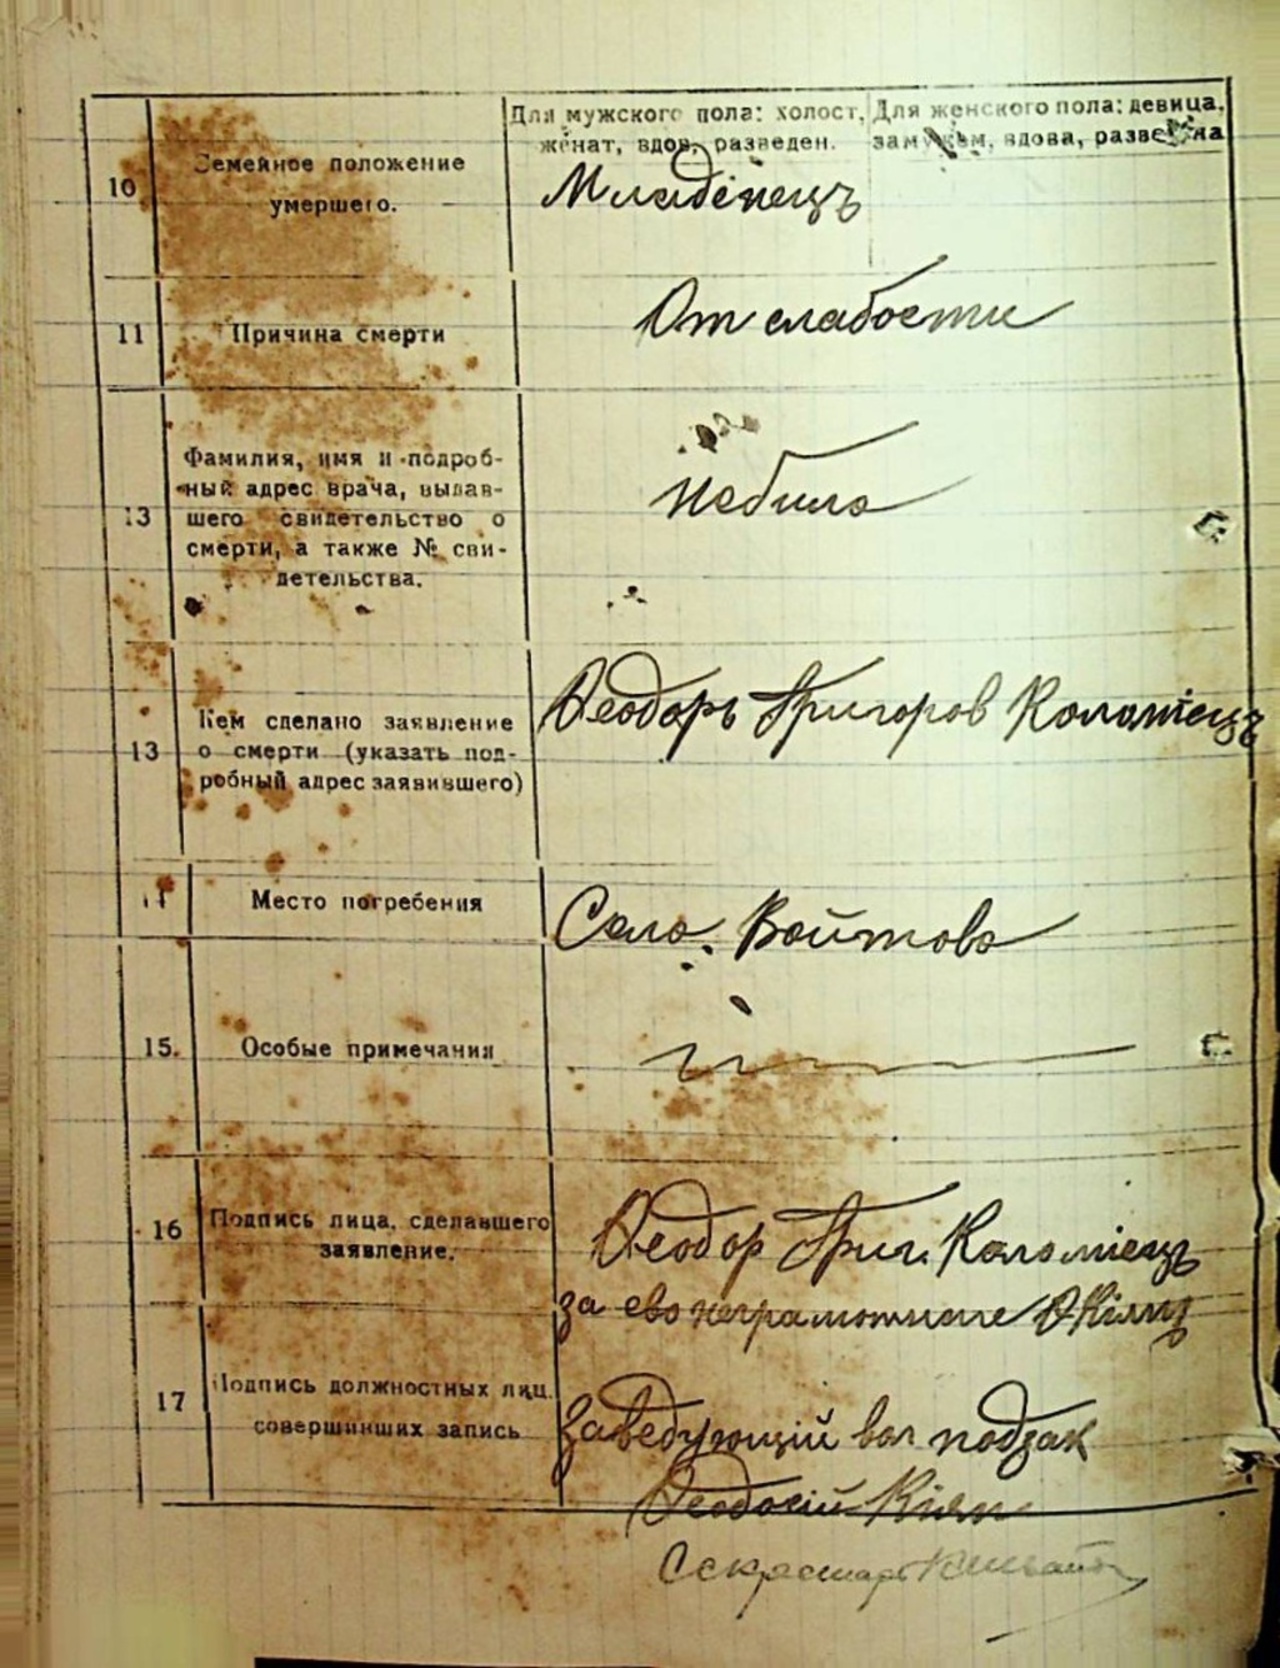 Для мужского пола: холост,
женат, вдов, разведен.
Для женского пола: девица,
замужем, вдова, разведена
10
Семейное положение
умершего.
Младенецъ
11
Причина смерти
От слабости
13
Фамилия, имя и подроб-
ный адрес врача, выдав-
шего свидетельство о
смерти, а также № сви-
детельства.
Небило
13
Кем сделано заявление
о смерти (указать под-
робный адрес заявившего)
Ѳеодоръ Григоров Коломіецъ
14
Место погребения
Село. Войтово
15.
Особые примечания
16
Подпись лица, сделавшего
заявление.
Ѳеодор Григ. Коломіецъ
за ево неграмотнше
17
Подпись должностных лиц,
совершивших запись
Заведующій вол подзак
Ѳеодосій Кіян
Секретарь